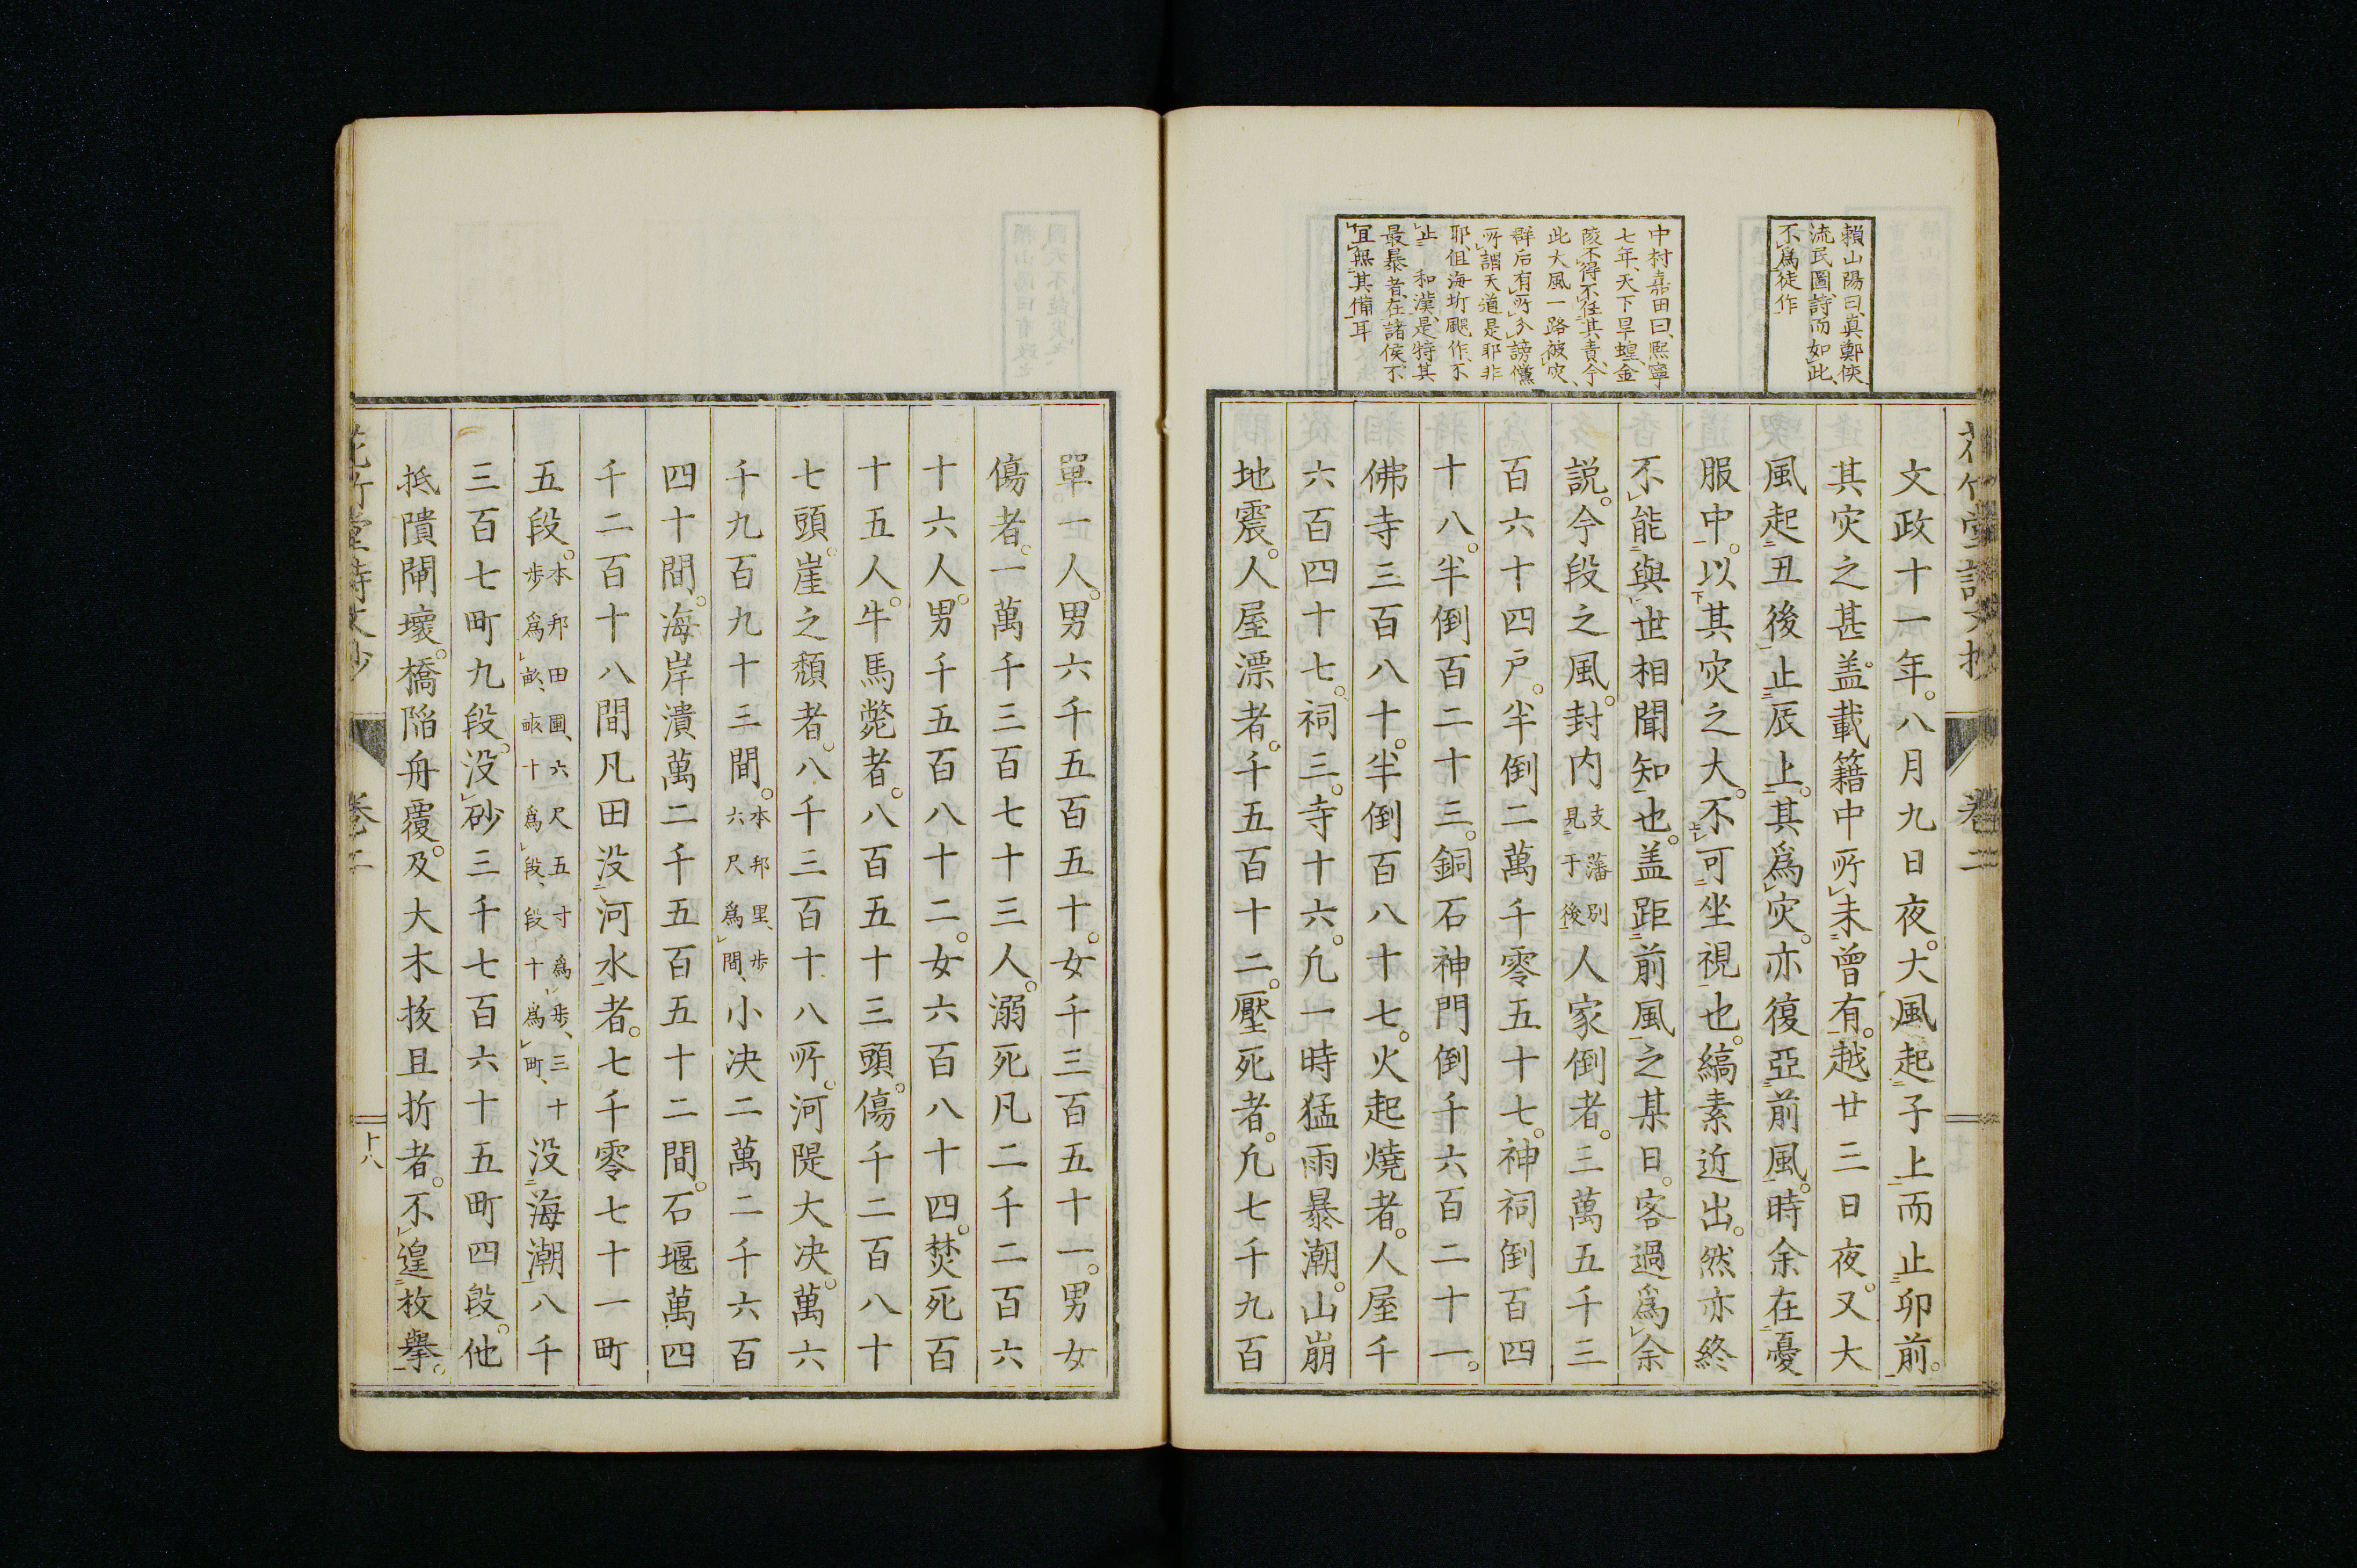 賴山陽曰、真鄭俠
流民圖詩、而如此、
不爲徒作
中村嘉田曰、熙寧
七年、天下旱蝗、金
陵不得不任其責、今
此大風一路被灾、
群后有所分謗、儻
所謂天道是耶非
耶、但海圻颶作、不
止 和漢、是特其
最暴者、在諸侯、不
宜無其備耳
文政十一年。八月九日夜。大風起子上而止卯前。
其灾之甚。盖載籍中所未曾有。越廿三日夜。又大
風起丑後止辰上。其爲灾。亦復亞前風。時余在憂
服中。以其灾之大。不可坐視也。縞素近出。然亦終
不能與世相聞知也。盖距前風之某日。客過爲余
説。今段之風。封内支藩別見于後人家倒者。三萬五千三
百六十四戸。半倒二萬千零五十七。神祠倒百四
十八。半倒百二十三。銅石神門倒千六百二十一。
佛寺三百八十。半倒百八十七。火起燒者。人屋千
六百四十七。祠三。寺十六。凢一時猛雨暴潮。山崩
地震。人屋漂者。千五百十二。壓死者。凢七千九百
卷二
單一人。男六千五百五十。女千三百五十一。男女
傷者。一萬千三百七十三人。溺死凡二千二百六
十六人。男千五百八十二。女六百八十四。焚死百
十五人。牛馬斃者。八百五十三頭。傷千二百八十
七頭。崖之頽者。八千三百十八所。河隄大决。萬六
千九百九十三間。本邦里、步六尺爲間、小决二萬二千六百
四十間。海岸潰萬二千五百五十二間。石堰萬四
千二百十八間凡田没河水者。七千零七十一町
五段。本邦田圃、六尺五寸爲步、三十步爲畝、畝十爲段、段十爲町、没海潮八千
三百七町九段。没砂三千七百六十五町四段。他
抵隤閘壞。橋陷舟覆。及大木拔且折者。不遑枚舉。
十八